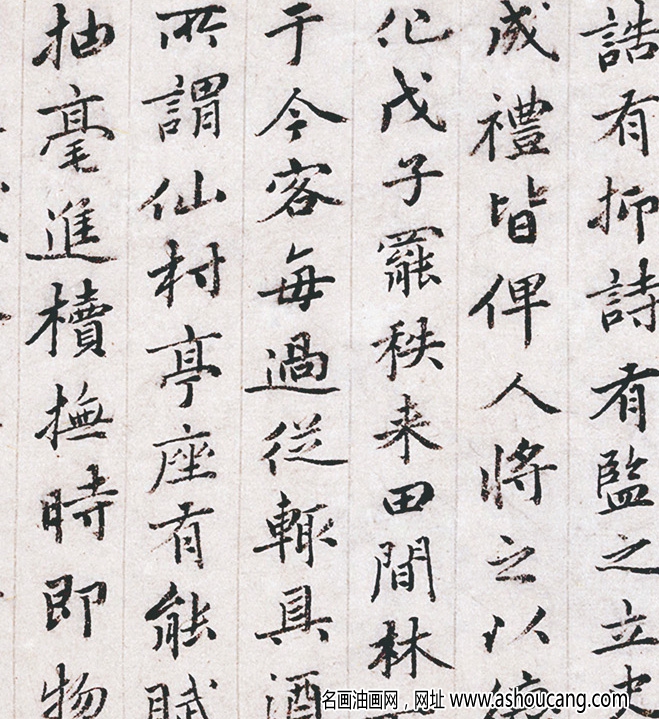 誥有抑詩有監之立史
成禮皆俾人將之以
化戊子罷秩来田間林
于今客每過從輙具酒
所謂仙村亭座有能賦
抽毫進櫝撫時即物
名画油画网，网址 www.ashoucang.com